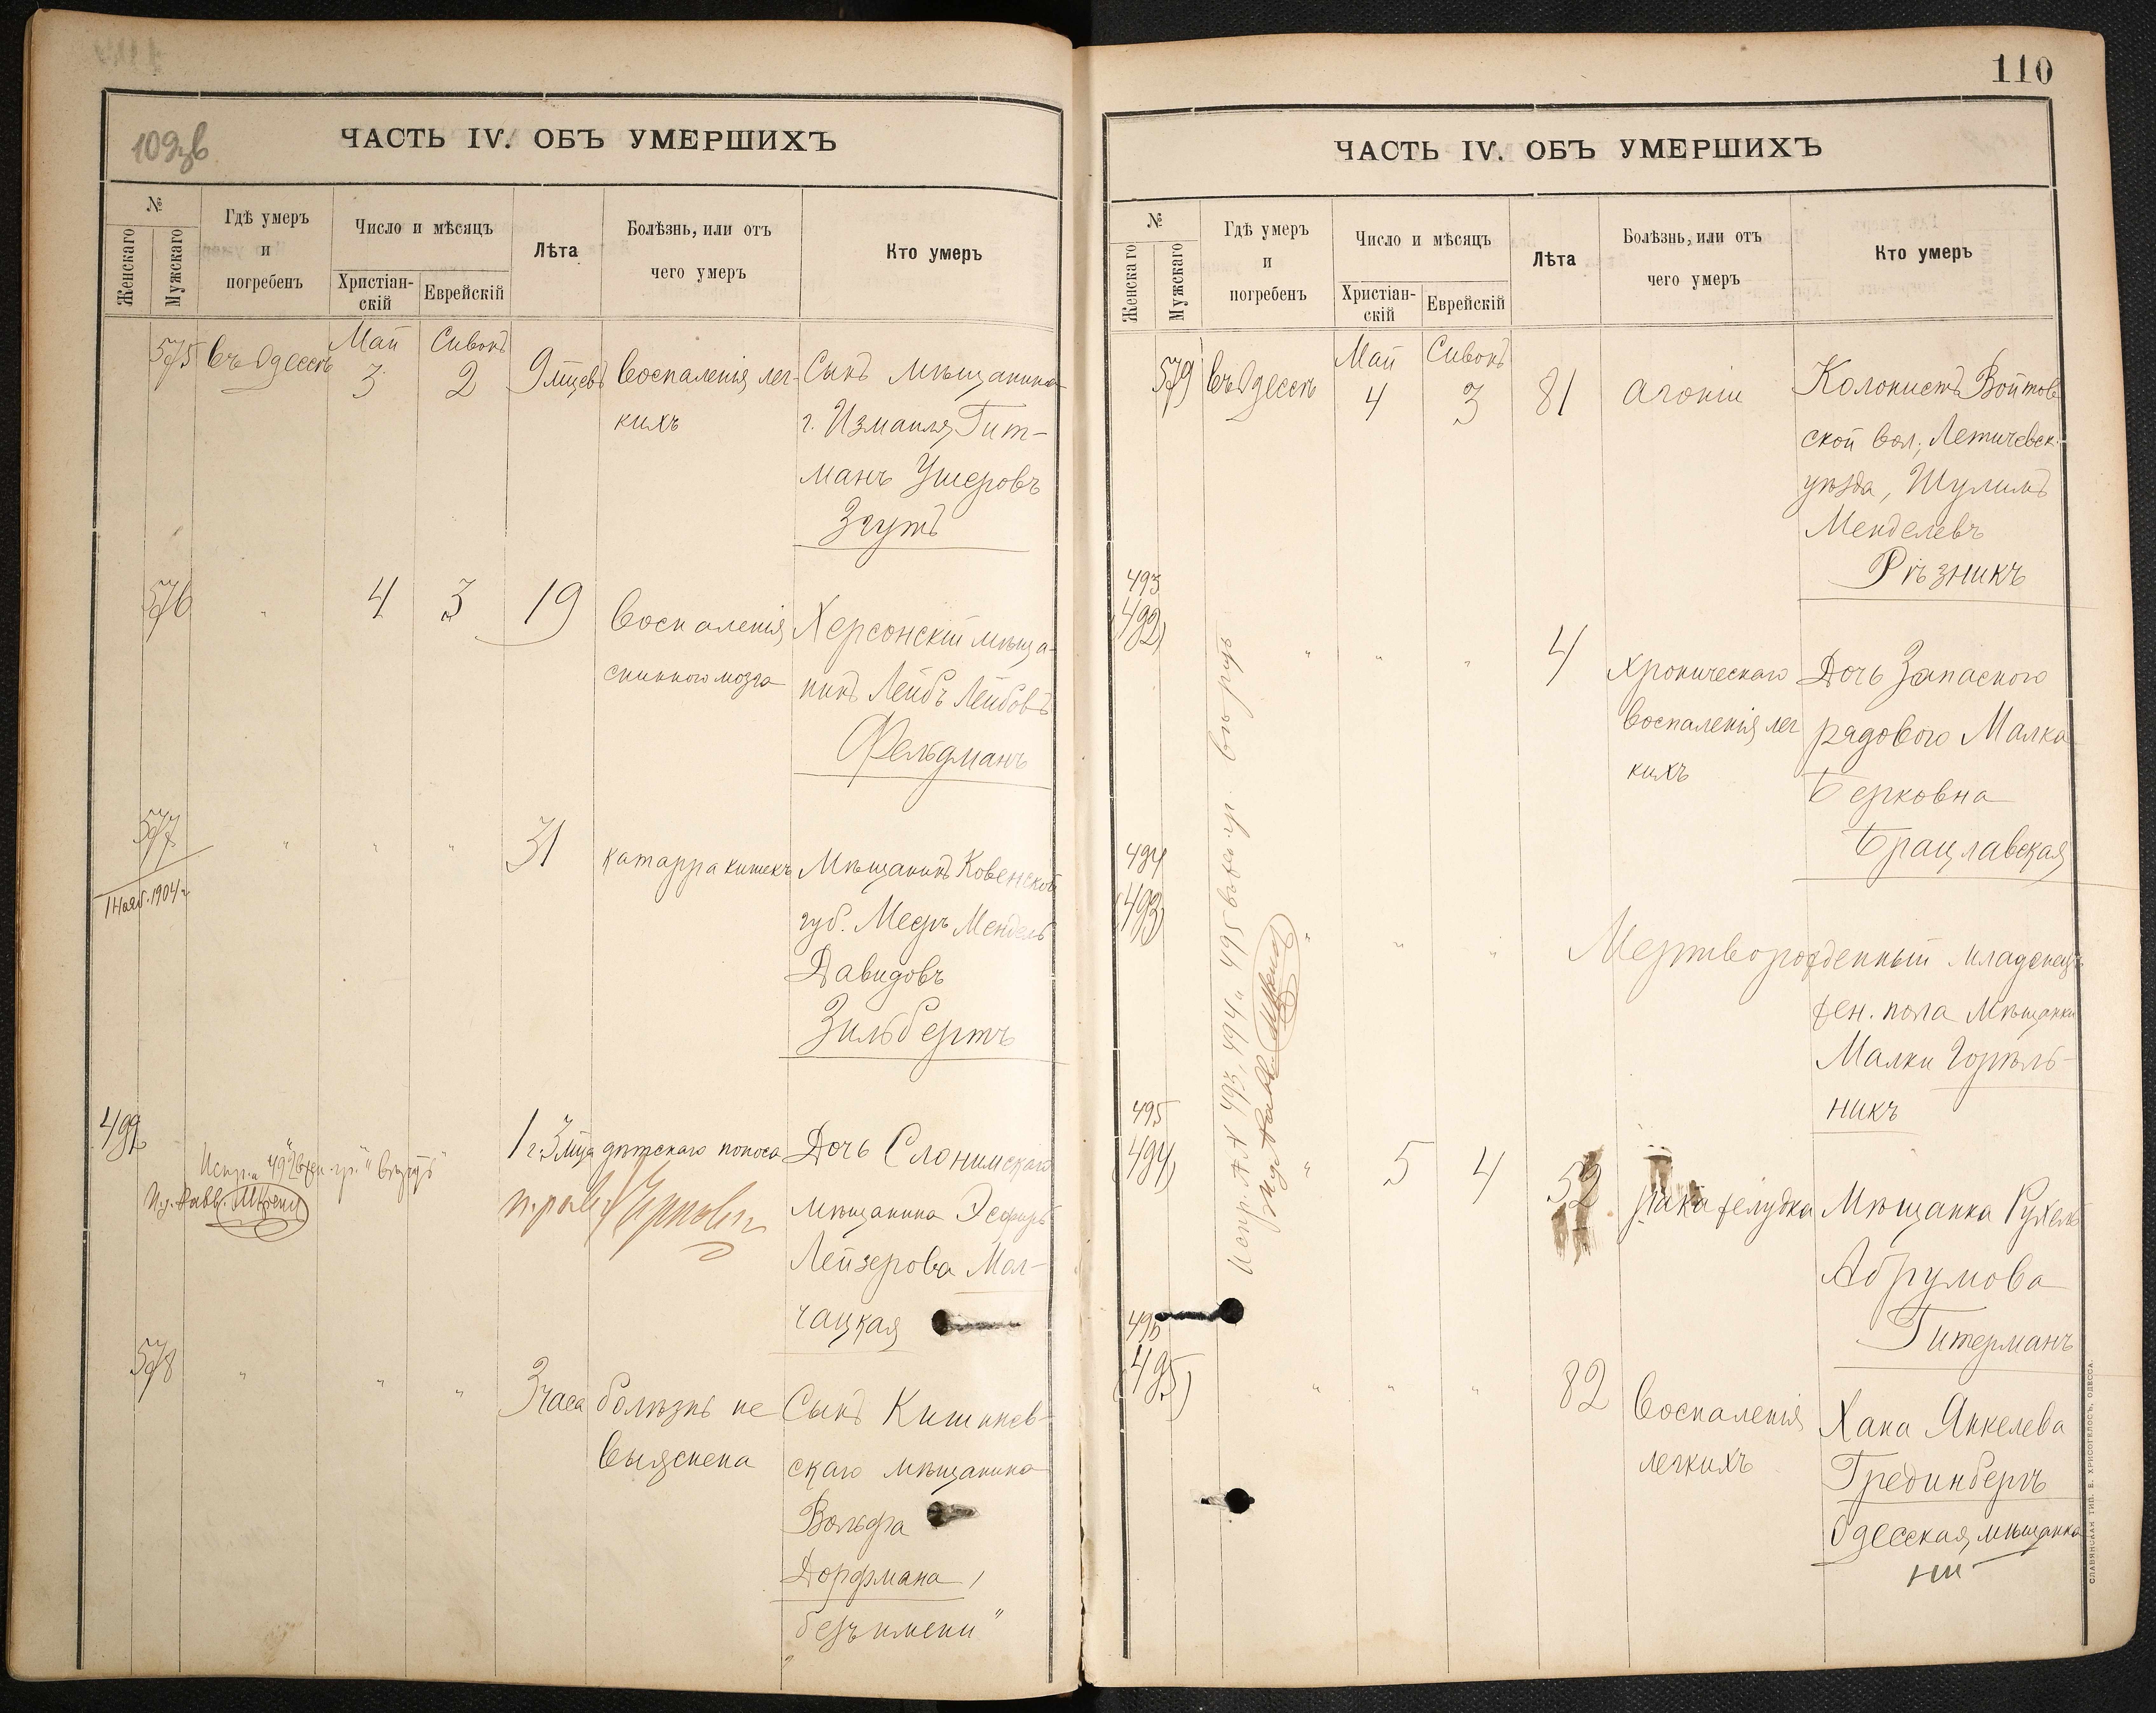 109зв
ЧАСТЬ IV. ОБЪ УМЕРШИХЪ
№
Женскаго
Мужскаго
Гдѣ умеръ
и
погребенъ
Число и мѣсяцъ
Христіан-
скій
Еврейскій
Лѣта
Болѣзнь, или отъ
чего умеръ
Кто умеръ
575 въ Одессѣ Май 3 Сивонъ 2 9 мцевъ Воспаленія лег-
кихъ
Сынъ мѣщанина
г. Измаила, Гит-
манъ Ушеровъ
Згутъ
576 " 4 3 19 Воспаленія
спинного мозга
Херсонскій мѣща-
нинъ Лейбъ Лейбовъ
Фельдманъ
577 " " " 31 катарра кишекъ
1 Нояб. 1904 г
Мѣщанинъ Ковенской
губ. Мееръ Мендель
Давидовъ
Зильбертъ
492 1 г. 3 мца дѣтскаго поноса
Дочь Слонимскаго
мѣщанина Эсфирь
Лейзерова Мол-
чацкая
578 " " " 3 часа болѣзнь не
выяснена
Сынъ Кишинев-
скаго мѣщанина
Вольфа
Дорфмана,
"безъ имени"
110
ЧАСТЬ IV. ОБЪ УМЕРШИХЪ
№
Женскаго
Мужскаго
Гдѣ умеръ
и
погребенъ
Число и мѣсяцъ
Христіан-
скій
Еврейскій
Лѣта
Болѣзнь, или отъ
чего умеръ
Кто умеръ
579 въ Одессѣ Май 4 Сивонъ 3 81 агоніи
Колонистъ Войтов
ской вол., Летичевск.
уѣзда, Шулимъ
Менделевъ
Рѣзникъ
493
(492) " " " 4 хроническаго
воспаленія лег
кихъ
Дочь Запаснаго
рядового Малка
Берковна
Брацлавская
494
(493) " " " Мертворожденный младенецъ
жен. пола мѣщанки
Малки Горѣль-
никъ
495
(494) " 5 4 52 рака желудка
Мѣщанка Рухель
Абрумова
Гитерманъ
496
(495) " " " 82 Воспаленія
легкихъ
Хана Янкелева
Грединбергъ
Одесская мѣщанка
СЛАВЯНСКАЯ ТИП. Е. ХРИСОГЕЛОСЪ, ОДЕССА.